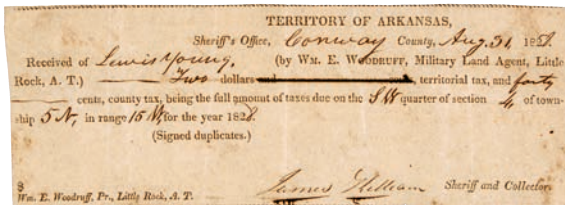 TERRITORY OF ARKANSAS,
Sheriff's Office, Conway County, Aug. 31, 1828.
Received of Lewis Young, (by WM. E. WOODRUFF, Military Land Agent, Little
Rock, A. T.) Two dollars and cents, territorial tax, and forty
cents, county tax, being the full amount of taxes due on the SW quarter of section 4, of town-
ship 5 N, in range 15 W, for the year 1828.
(Signed duplicates.)
James Sheriff and Collector.
Wm. E. Woodruff, Pr., Little Rock, A. T.